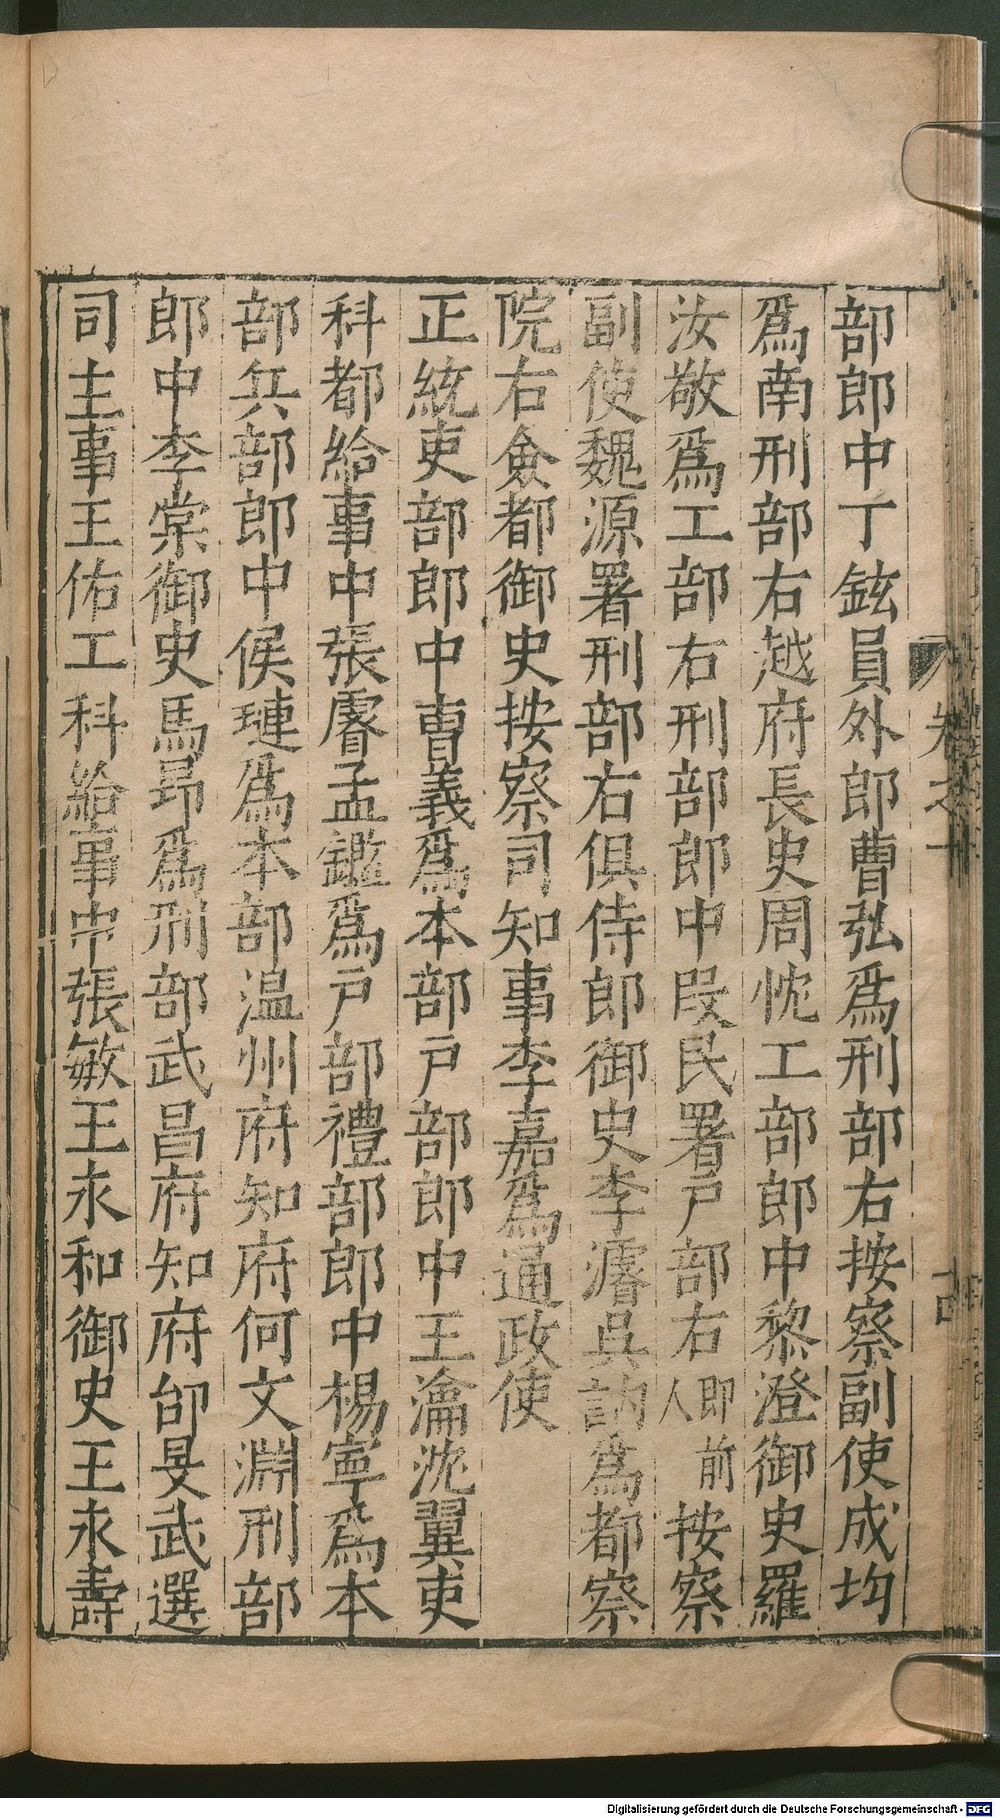 部郎中丁鉉員外郎曹弘爲刑部右按察副使成均
爲南刑部右越府長史周忱工部郎中黎澄御史羅
汝敬爲工部右刑部郎中段民署戸部右即前人按察
副使魏源署刑部右俱侍郎御史李濬吳訥爲都察
院右僉都御史按察司知事李嘉爲通政使
正統吏部郎中曹義爲本部戸部郎中王瀹沈翼吏
科都給事中張睿孟鑑爲戸部禮部郎中楊寧爲本
部兵部郎中侯璡爲本部温州府知府何文淵刑部
郎中李棠御史馬昂爲刑部武昌府知府邰旻武選
司主事王佑工科給事中張敏王永和御史王永壽
卷之十
十四
Digitalisierung gefördert durch die Deutsche Forschungsgemeinschaft - DFG